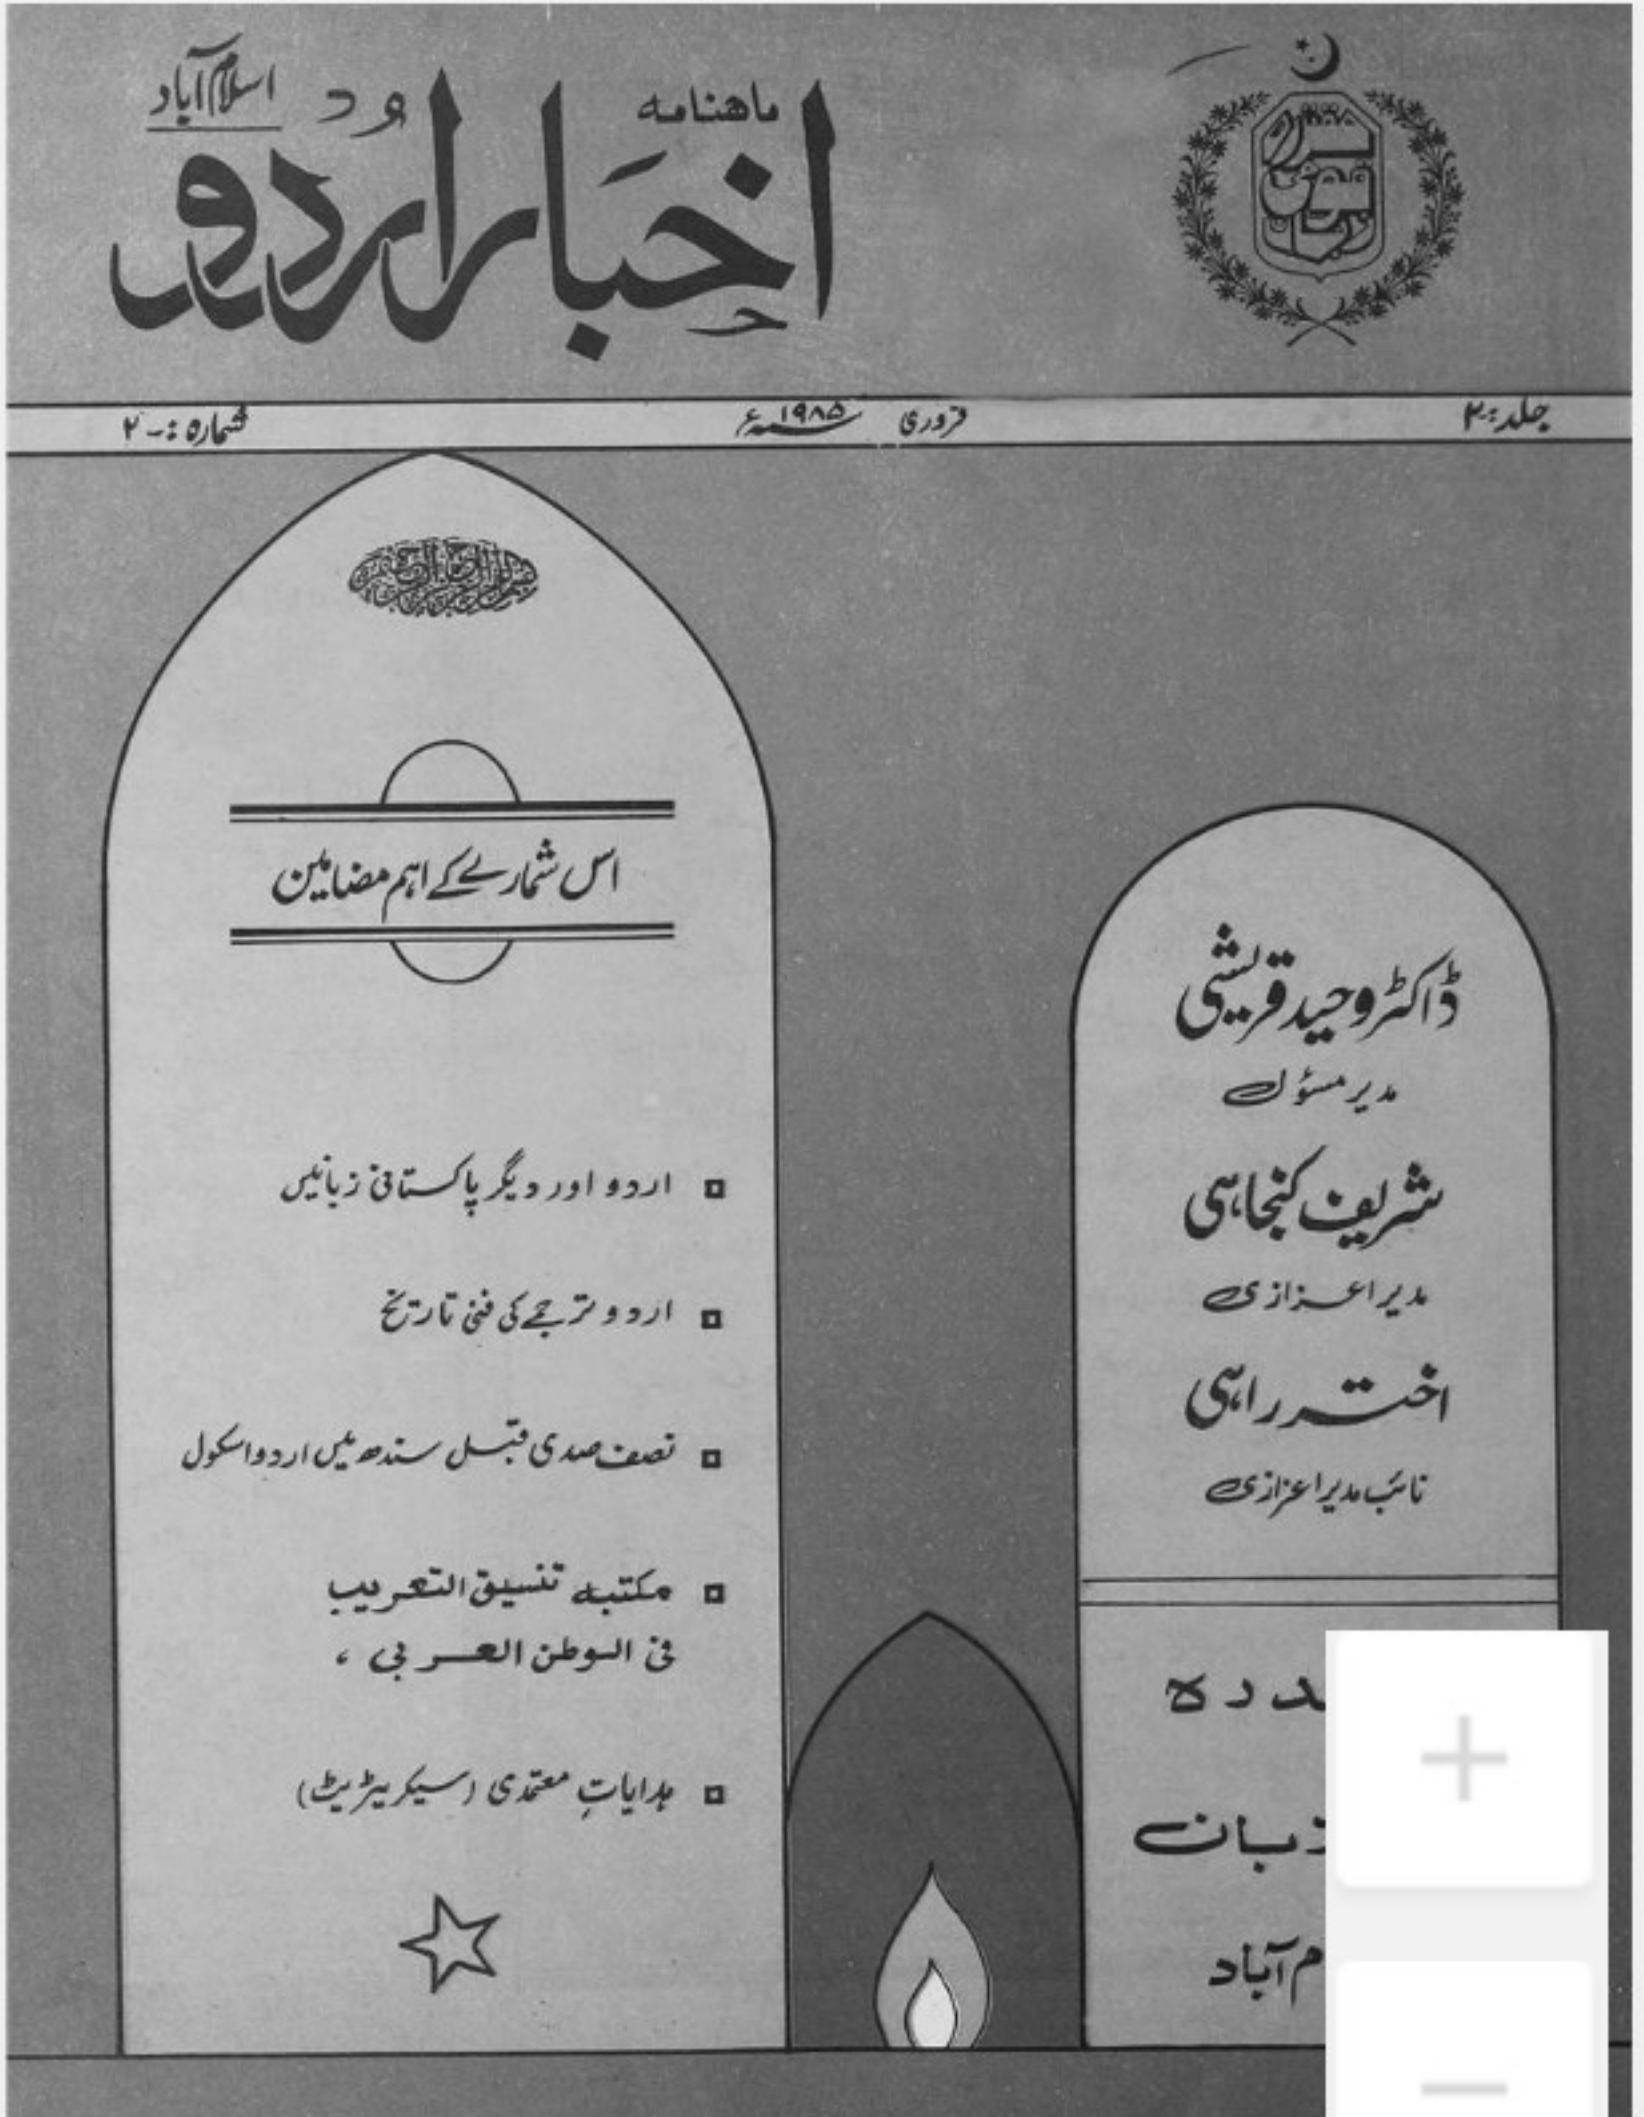 ماهنامه
اسلام آباد
اخبار اردو
مقتدرہ قومی زبان
جلد :- ۲
فروری ۱۹۸۵ء
شمارہ :- ۲
بسم اللہ الرحمن الرحیم
اس شمارے کے اہم مضامین
اردو اور دیگر پاکستانی زبانیں
اردو ترجمے کی فنی تاریخ
نصف صدی قبل سندھ میں اردو اسکول
مکتبہ تنسیق التعریب
فی الوطن العربی ،
ہدایاتِ معتمدی (سیکریٹریٹ)
ڈاکٹر وحید قریشی
مدیر مسؤل
شریف کنجاہی
مدیر اعزازی
اختر راہی
نائب مدیر اعزازی
زبان
آباد